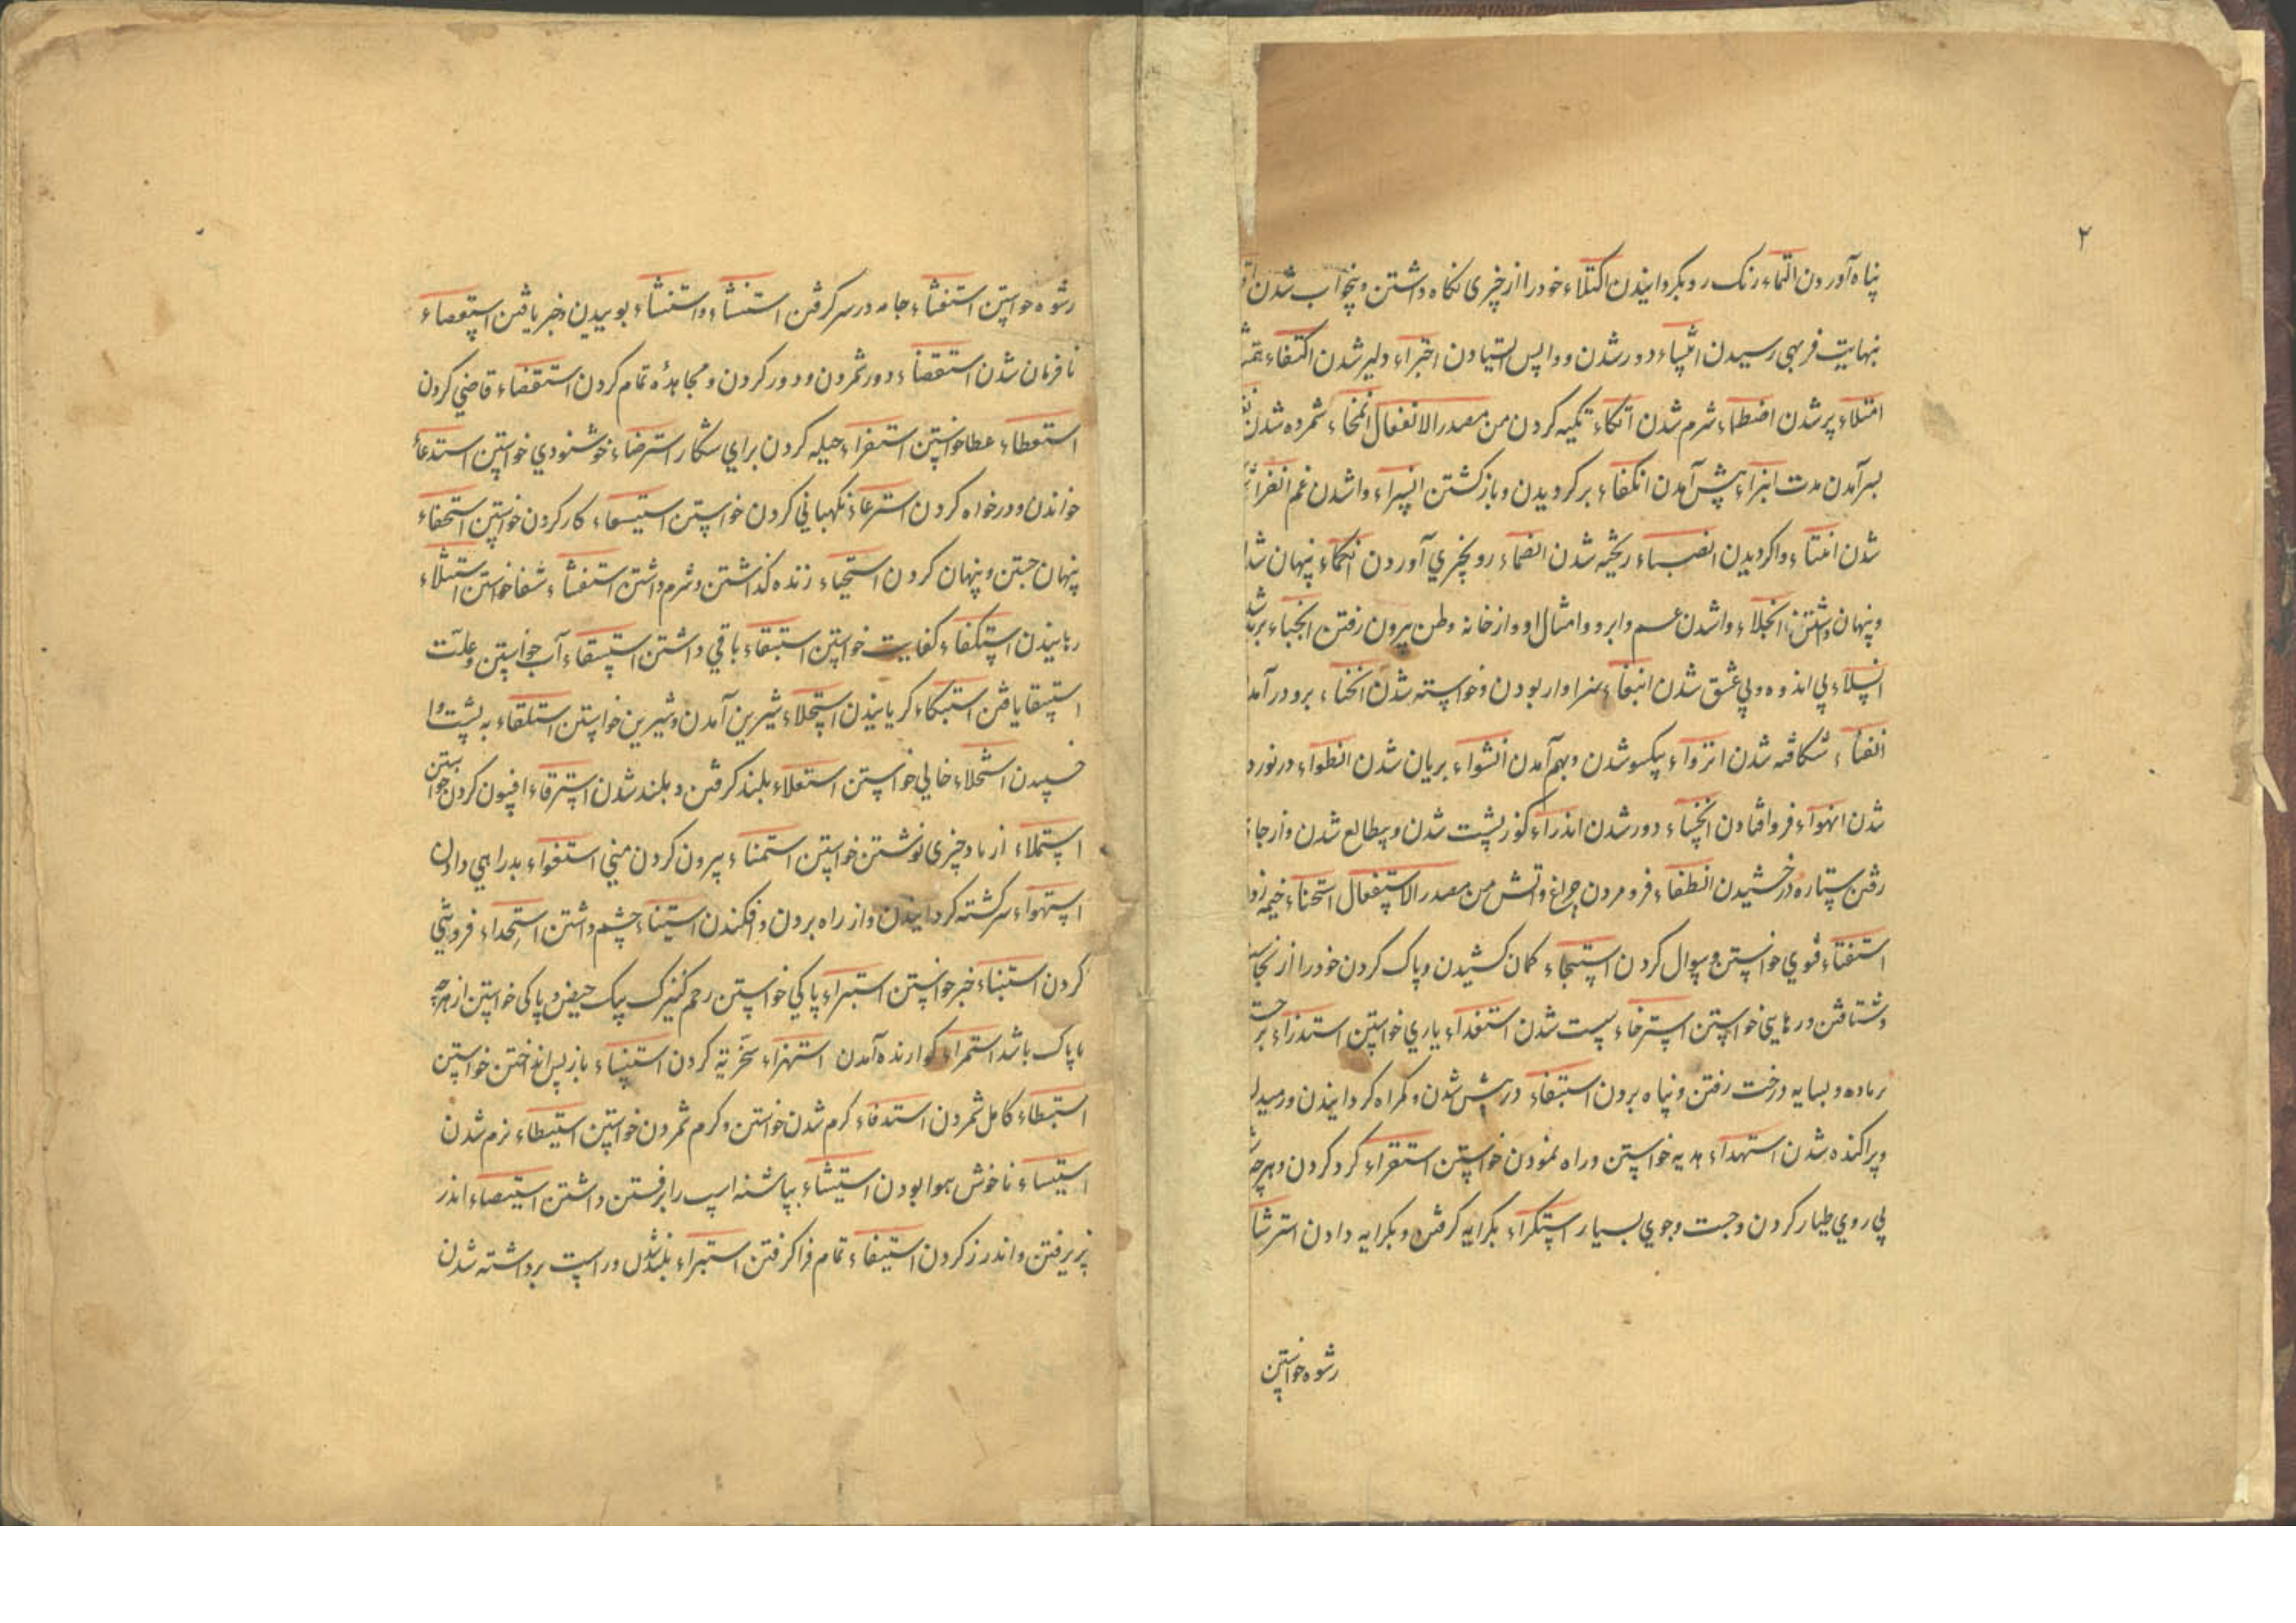 ۲
پناه آوردن التماء رنک رو بکردانیدن اکتلاء خود را از چیزی نکاه داشتن و بیخواب شدن
بنهایت فربهی رسیدن انتساء دور شدن و واپس ایستیادن اجتراء دلیر شدن اکتفاء
امتلاء پر شدن اضطماء شرم شدن اتکاء تکیه کردن من مصدر الانفعال انمخاء شمرده شدن
بسر آمدن مدت انبراء پیش آمدن انکفاء برکردیدن و بازکشتن انسراء وا شدن غم انفراء
شدن انثناء واکردیدن انصباء ریخته شدن انضماء رو بچیزی آوردن انکماء پنهان شدن
و پنهان داشتن انجلاء وا شدن غم و ابر و امثال او و از خانه و طن بیرون رفتن انجباء
انسلاء بی اندوه و بی عشق شدن انبغاء سزاوار بودن و خواسته شدن انخناء
انفقاء شکافته شدن انزواء یکسو شدن و بهم آمدن انشواء بریان شدن انطواء در نورد
شدن انهواء فرو افتادن انخساء دور شدن اندراء کوز پشت شدن و بطالع شدن و از جا
رفتن ستاره درخشیدن انطفاء فرو مردن چراغ و آتش من مصدر الاستفعال استخباء خیمه زدن
استفتاء فتوی خواستن و سوال کردن استنجاء کمان کشیدن و پاک کردن خود را از نجاست
و شتافتن و رهایی خواستن استرخاء سست شدن استغداء یاری خواستن استدراء
بر ماده و بسایه درخت رفتن و پناه بردن استبغاء در پیش شدن و کمراه کردانیدن
و پراکنده شدن استهداء هدیه خواستن و راه نمودن خواستن استقراء کرد کردن
پی روی طیار کردن و جست و جوی بسیار استکراء بکرایه کرفتن و بکرایه دادن استرشاء
رشوه خواستن
رشوه خواستن استغشاء جامه در سر کرفتن استنشاء و استنشاء بوییدن و خبر یافتن استعصاء
نا فرمان شدن استقصاء دور شمردن و دور کردن و مجاهده تمام کردن استقضاء قاضی کردن
استعطاء عطا خواستن استفراء حیله کردن برای شکار استرضاء خوشنودی خواستن استدعاء
خواندن و در خواه کردن استرعاء نکهبانی کردن خواستن استسعاء کار کردن خواستن استخفاء
پنهان جستن و پنهان کردن استحیاء زنده کذاشتن و شرم داشتن استشفاء شفا خواستن استتلاء
رهانیدن استکفاء کفایت خواستن استبقاء باقی داشتن استسقاء آب خواستن و علت
استسقا یافتن استبکاء کریانیدن استحلاء شیرین آمدن و شیرین خواستن استلقاء به پشت وا
خسپیدن استخلاء خالی خواستن استعلاء بلند کرفتن و بلند شدن استرقاء افسون کردن خواستن
استملاء از یاد چیزی نوشتن خواستن استمناء بیرون کردن منی استغواء بد راهی دادن
استهواء سرکشته کردانیدن و از راه بردن و افکندن استیناء چشم داشتن استخذاء فروتنی
کردن استنباء خبر خواستن استبراء پاکی خواستن رحم کنیزک بیک حیض و پاکی خواستن از هر چه
نا پاک باشد استمراء کوارنده آمدن استهزاء سخریه کردن استنساء باز پس انداختن خواستن
استبطاء کامل شمردن استدفاء کرم شدن خواستن و کرم شمردن خواستن استیطاء نرم شدن
استیساء ناخوش هوا بودن استیشاء بپاشنه اسپ را بر رفتن داشتن استیصاء اندر
پزیرفتن و اندرز کردن استیفاء تمام فرا کرفتن استبراء بلند شدن و راست برداشته شدن